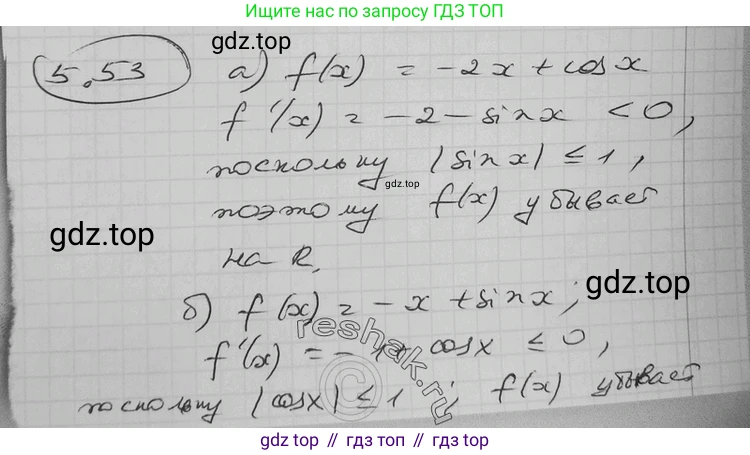 Ищите нас по запросу ГДЗ ТОП
gdz.top
5.53 а) f(x) = -2x + cos x
f'(x) = -2 - sin x < 0,
поскольку |sin x| ≤ 1,
gdz.top
поэтому f(x) убывает
gdz.top
на R.
gdz.top
б) f(x) = -x + sin x;
reshak.ru
f'(x) = -1 + cos x ≤ 0,
©
поскольку |cos x| ≤ 1; f(x) убывает
gdz.top // гдз топ // gdz.top